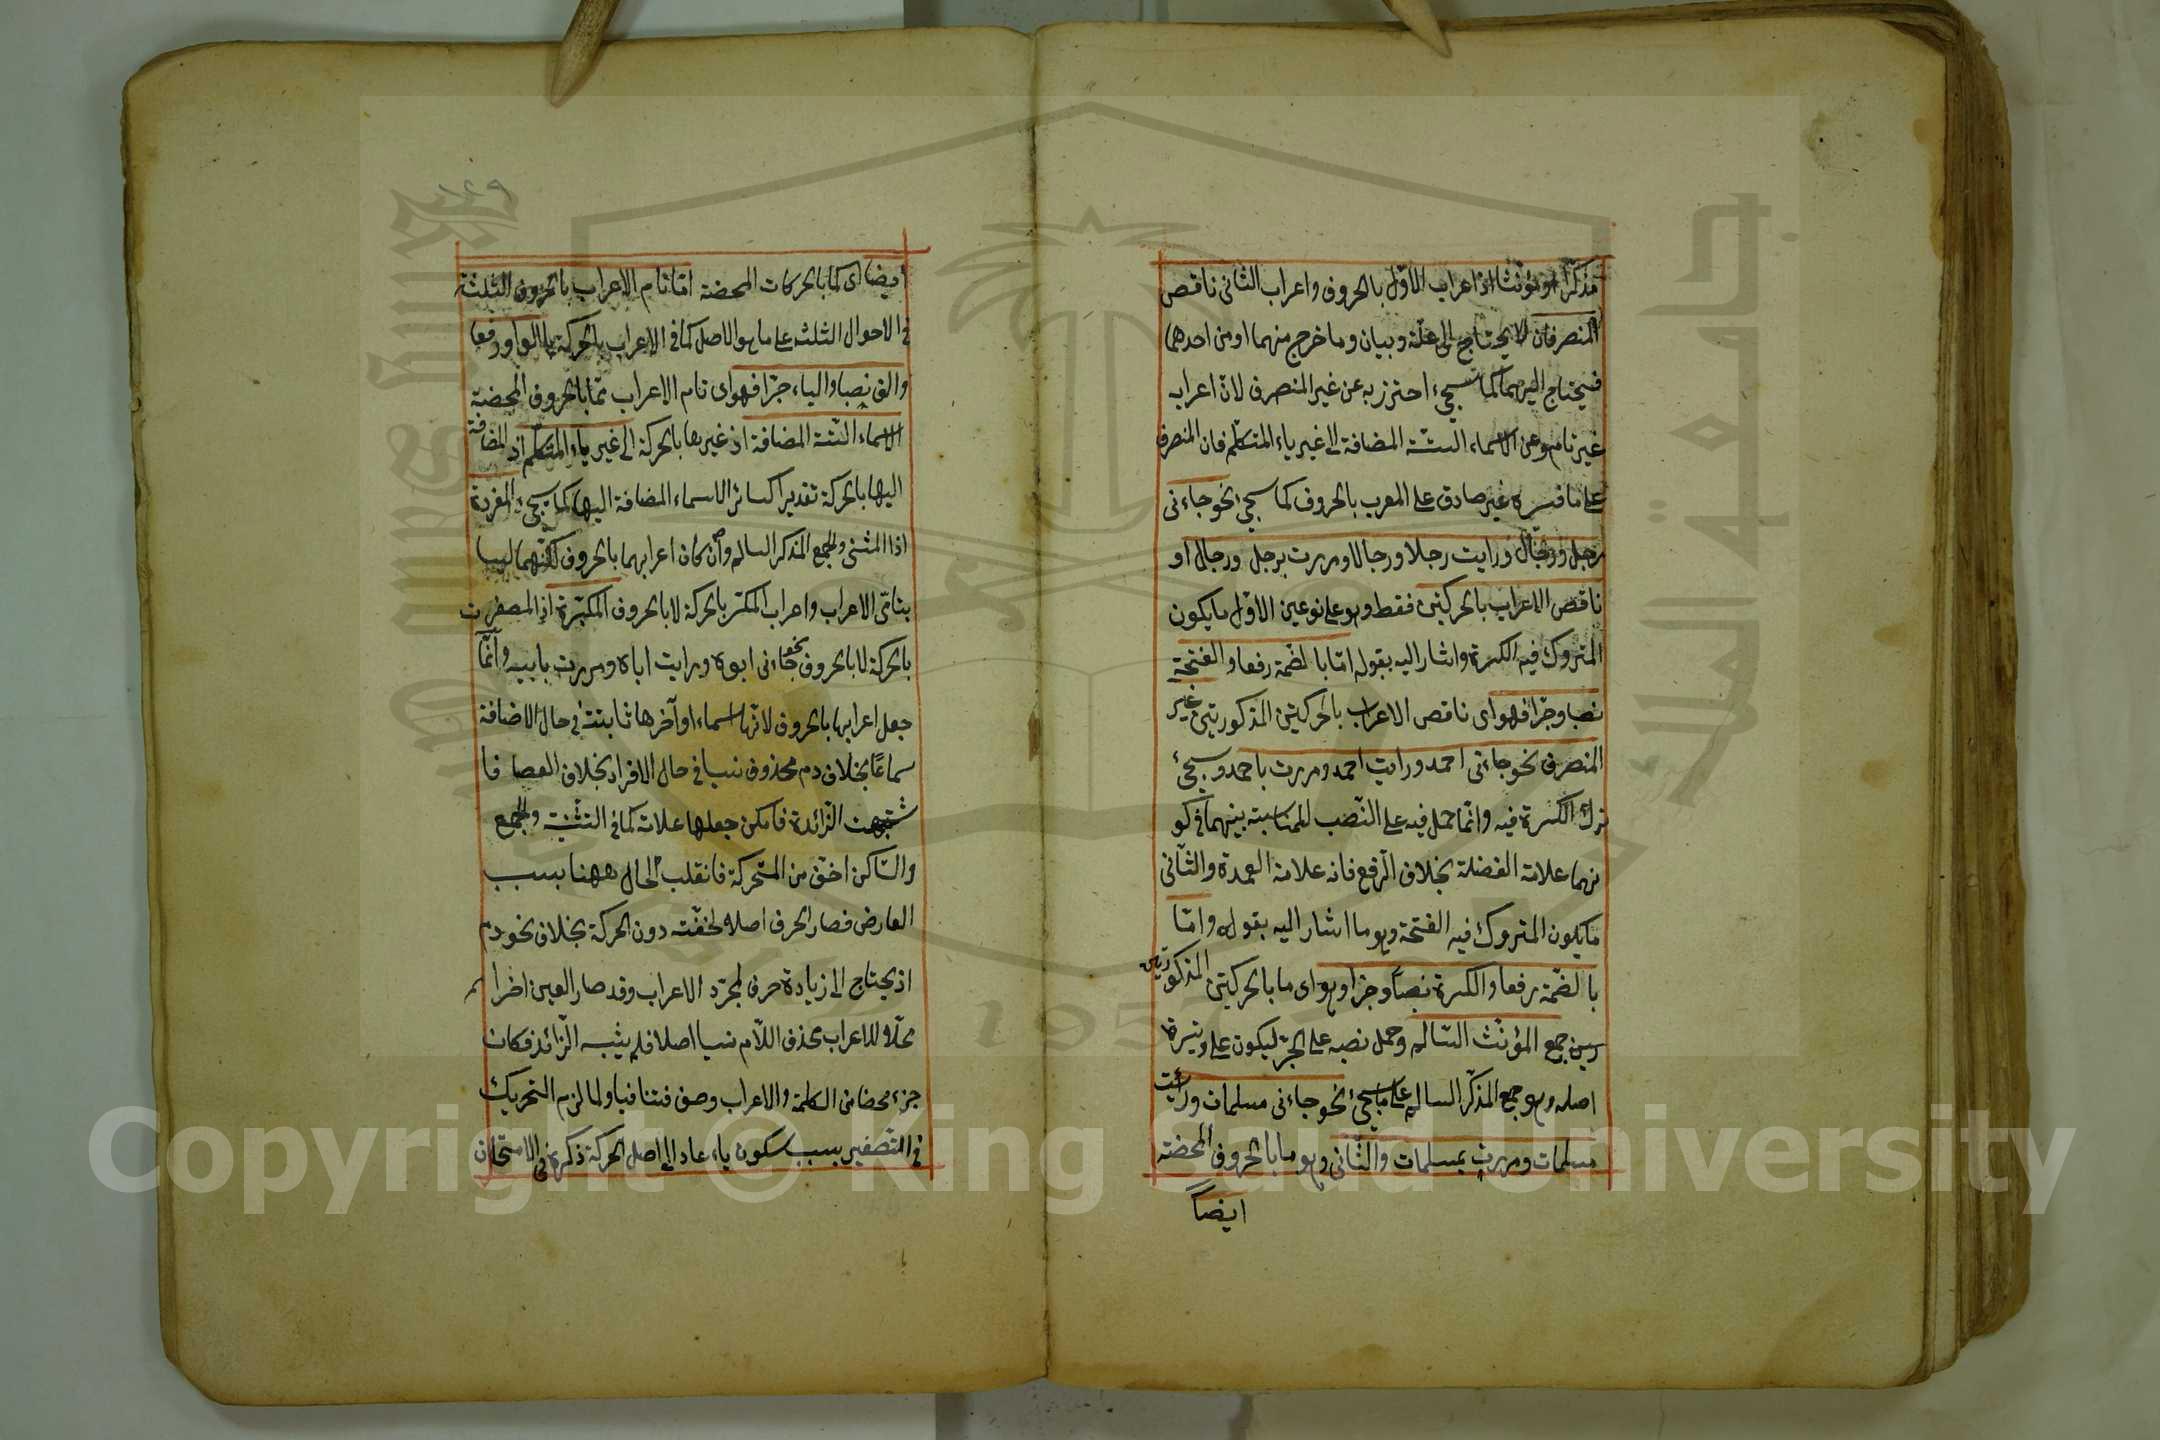 مذكرا او مؤنثا اذ اعراب الاول بالحروف واعراب الثانى ناقص
المنصرفان لا يحتاج الى علة وبيان وما خرج منهما او من احدهما
فيحتاج اليهما كما سيجئ احترز به عن غير المنصرف لان اعراب
غير تام وعن الاسماء الستة المضافة الى غير ياء المتكلم فان المنصرف
على ما فسره غير صادق على المعرب بالحروف كما سيجئ نحو جاءنى
رجل ورجال ورايت رجلا ورجالا ومررت برجل ورجال او
ناقص الاعراب بالحركتين فقط وهو على نوعين الاول ما يكون
المتروك فيه الكسرة واشار اليه بقوله اما بالضمة رفعا والفتحة
نصبا وجرا فهو اى ناقص الاعراب بالحركتين المذكورتين غير
المنصرف نحو جاءنى احمد ورايت احمد ومررت باحمد وسيجئ
ترك الكسرة فيه وانما حمل فيه على النصب للمناسبة بينهما فى كو
نهما علامة الفضلة بخلاف الرفع فانه علامة العمدة والثانى
ما يكون المتروك فيه الفتحة وهو ما اشار اليه بقوله واما
بالضمة رفعا والكسرة نصبا وجرا وهو اى ما بالحركتين المذكورتين
جمع المؤنث السالم وحمل نصبه على الجر ليكون على وتيرة
اصله وهو جمع المذكر السالم على ما سيجئ نحو جاءنى مسلمات ورأيت
مسلمات ومررت بمسلمات والثانى وهو ما بالحروف المحضة
ايضاً
ايضا اى كما بالحركات المحضة اما تام الاعراب بالحروف الثلثة
فى الاحوال الثلثة على ما هو الاصل كما فى الاعراب بالحركة بالواو رفعا
والف نصبا والياء جرا فهو اى تام الاعراب مما بالحروف المحضة
الاسماء الستة المضافة اذ غيرها بالحركة الى غير ياء المتكلم اذ المضافة
اليها بالحركة تقديرا كسائر الاسماء المضافة اليها كما سيجئ المفردة
اذ المثنى والجمع المذكر السالم وان كان اعرابهما بالحروف لكنهما ليسا
بتامى الاعراب واعراب المكسر بالحركة لا بالحروف المكبرة اذ المصغرت
بالحركة لا بالحروف نحو جاءنى ابوه ورايت اباه ومررت بابيه وانما
جعل اعرابها بالحروف لانها اسماء اواخرها ثابتة فى حال الاضافة
سماعا بخلاف دم محذوف نسيا فى حال الافراد بخلاف العصا فا
شتبهت الزائدة فامكن جعلها علامة كما فى التثنية والجمع
والساكن اخف من المتحركة فانقلب الحال ههنا بسبب
العارض فصار الحرف اصلا لخفته دون الحركة بخلاف نحو دم
اذ يحتاج الى زيادة حرف لمجرد الاعراب وقد صار العين اخرا
محلا للاعراب بحذف اللام نسيا اصلا فلم يشبه الزائد فكانت
جزء محضا من الكلمة والاعراب وصف فتنافيا ولما لزم التحريك
فى التصغير بسبب سكون ياء عاد الى اصل الحركة ذكره فى الامتحان
Copyright © King Saud University
جامعة الملك سعود
1957